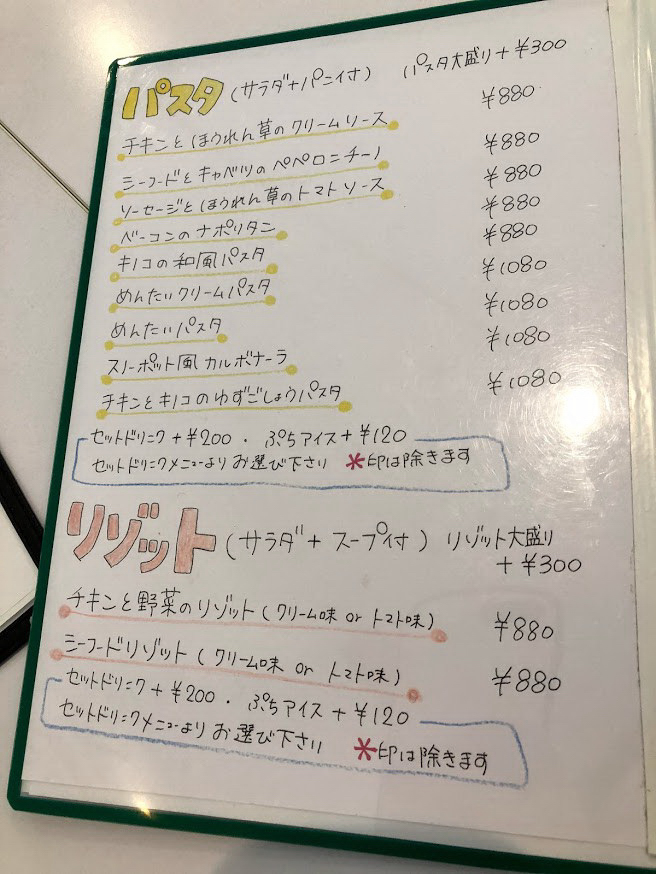 パスタ (サラダ+パン付) パスタ大盛り+¥300
チキンとほうれん草のクリームソース ¥880
シーフードとキャベツのペペロンチーノ ¥880
ソーセージとほうれん草のトマトソース ¥880
ベーコンのナポリタン ¥880
キノコの和風パスタ ¥880
めんたいクリームパスタ ¥1080
めんたいパスタ ¥1080
スノーポット風カルボナーラ ¥1080
チキンとキノコのゆずごしょうパスタ ¥1080
セットドリンク+¥200・ぷちアイス+¥120
セットドリンクメニューよりお選び下さい *印は除きます
リゾット (サラダ+スープ付) リゾット大盛り
+¥300
チキンと野菜のリゾット(クリーム味 or トマト味) ¥880
シーフードリゾット(クリーム味 or トマト味) ¥880
セットドリンク+¥200・ぷちアイス+¥120
セットドリンクメニューよりお選び下さい *印は除きます